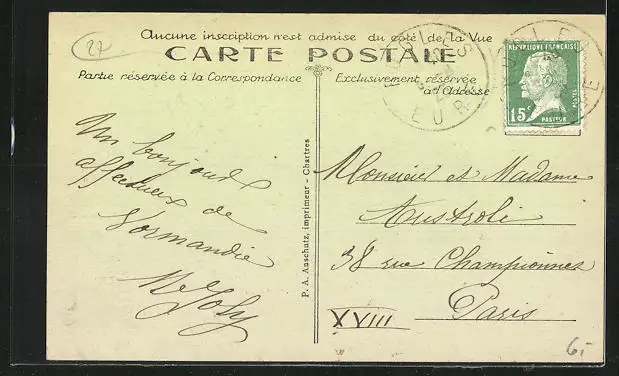 27
Aucune inscription n'est admise du côté de la Vue
CARTE POSTALE
Partie réservée à la Correspondance
Exclusivement réservée
à l'Adresse
RÉPUBLIQUE FRANÇAISE
POSTES
15c
PASTEUR
EURE
Un bonjour
affectueux de
Normandie
M Joly
P. A. Anschutz, imprimeur - Chartres
Monsieur et Madame
Austroli
38 rue Championnet
Paris
XVIII
6.-